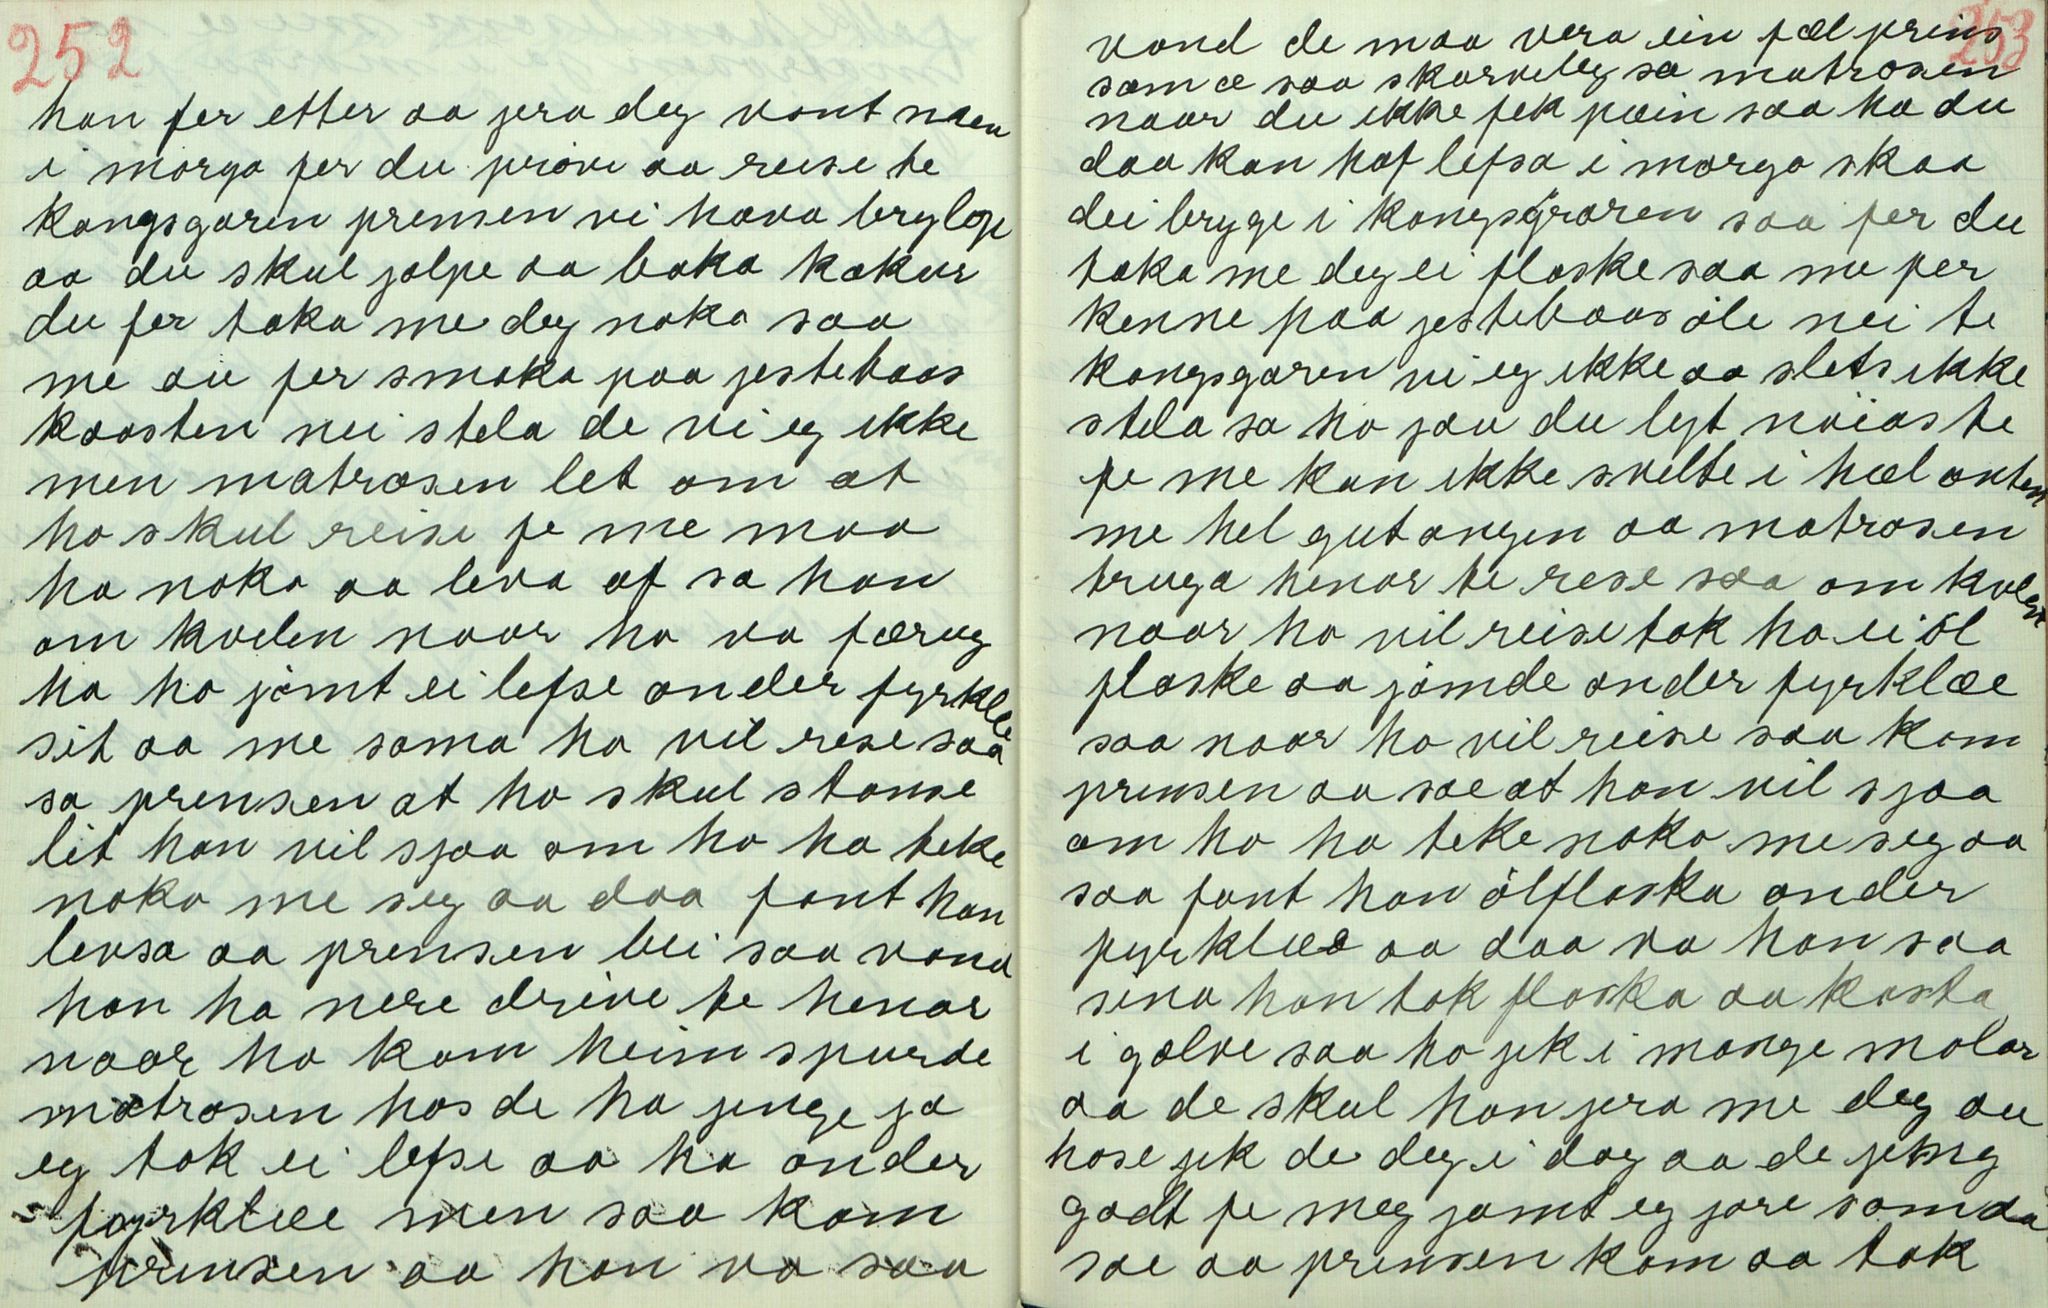 252
han fer etter aa jera deg vont naen
i morgo fer du pröve aa reise te
kongsgaren prensen vi hava brylope
aa du skul jolpe aa baka kakur
du fer taka me deg noka saa
me au fer smaka paa jestebaas
kaasten nei stela de vi eg ikke
men matrosen let om at
ho skul reise fe me maa
ha noka aa leva af sa han
om kvelen naar ho va færug
ha ho jömt ei lefse onder fyrklee
sit aa me soma ho vil reise saa
sa prensen at ho skul stanse
lit han vil sjaa om ho ha teke
noka me seg aa daa fant han
levsa aa prensen blei saa vond
han ha nere dreve te henar
naar ho kom heim spurde
matrosen hos de ha jenge ja
eg tok ei lefse aa ha onder
fyrklee men saa kom
prensen aa han va saa
253
vond de maa vera ein fæl prins
som æ saa skarveleg sa matrosen
naar du ikke fek paein saa ha du
daa kan haf lefsa i morgo skaa
dei bryge i kongsgaaren saa fer du
taka me deg ei flaske saa me fer
kenne paa jestebaas öle nei te
kongsgaren vi eg ikke aa slets ikke
stela sa ho jau du lyt nöias te
fe me kan ikke svelte i hæl anten
me hel gutongen aa matrosen
truga henar te rese saa om kvelen
naar ho vil reise tok ho ei öl
flaske aa jömde onder fyrklæe
saa naar ho vil reise saa kom
prensen aa sae at han vil sjaa
om ho ha teke noko me seg aa
saa fant han ölflaska onder
fyrklæe aa daa va han saa
sena han tok flaska aa kasta
i golve saa ho jek i mange molar
aa de skul han jera me deg au
hose jek de deg i dag aa de jeng
godt fe meg jamt eg jore som du
sae aa prensen kom aa tok